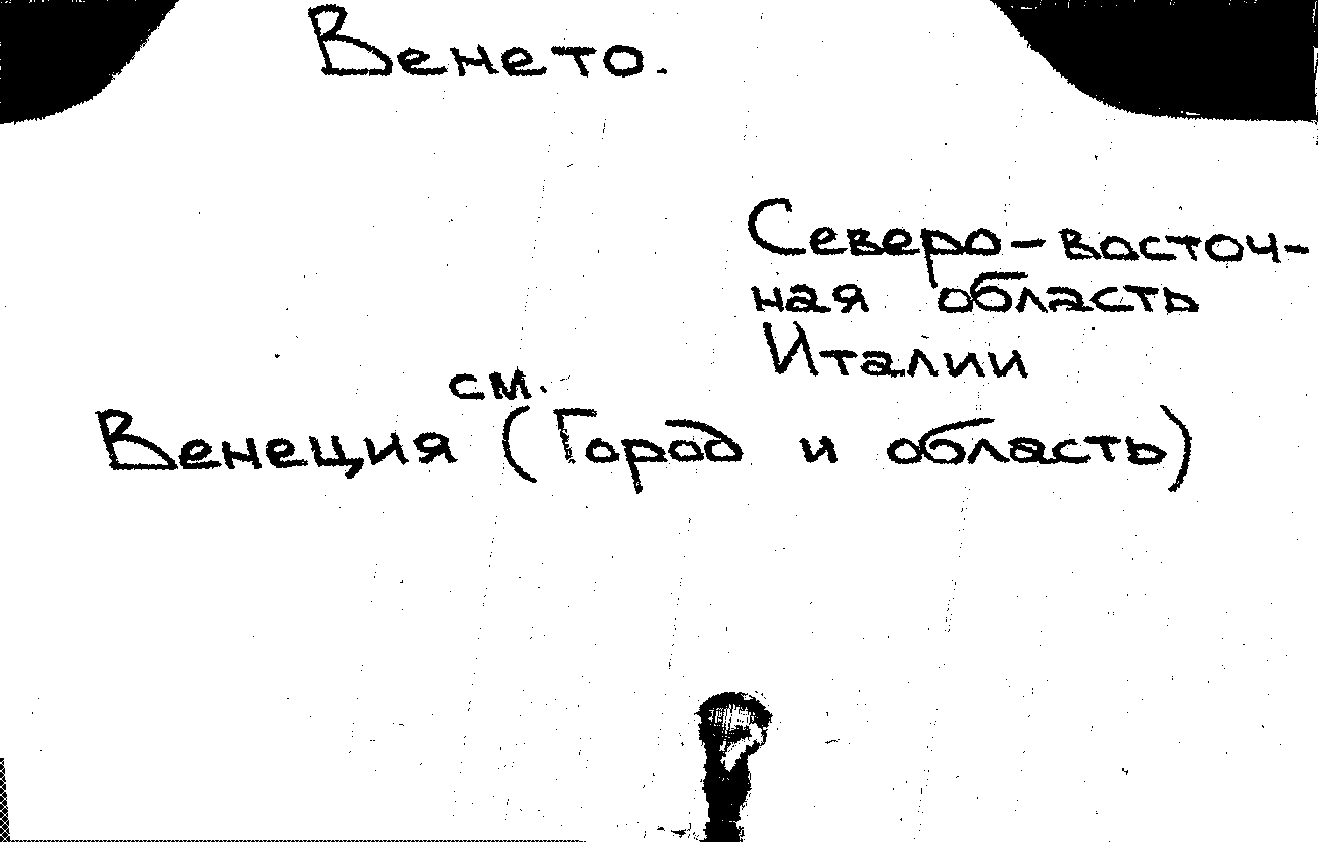 Венето.
Северо-восточ-
ная область
Италии
см.
Венеция (Город и область)